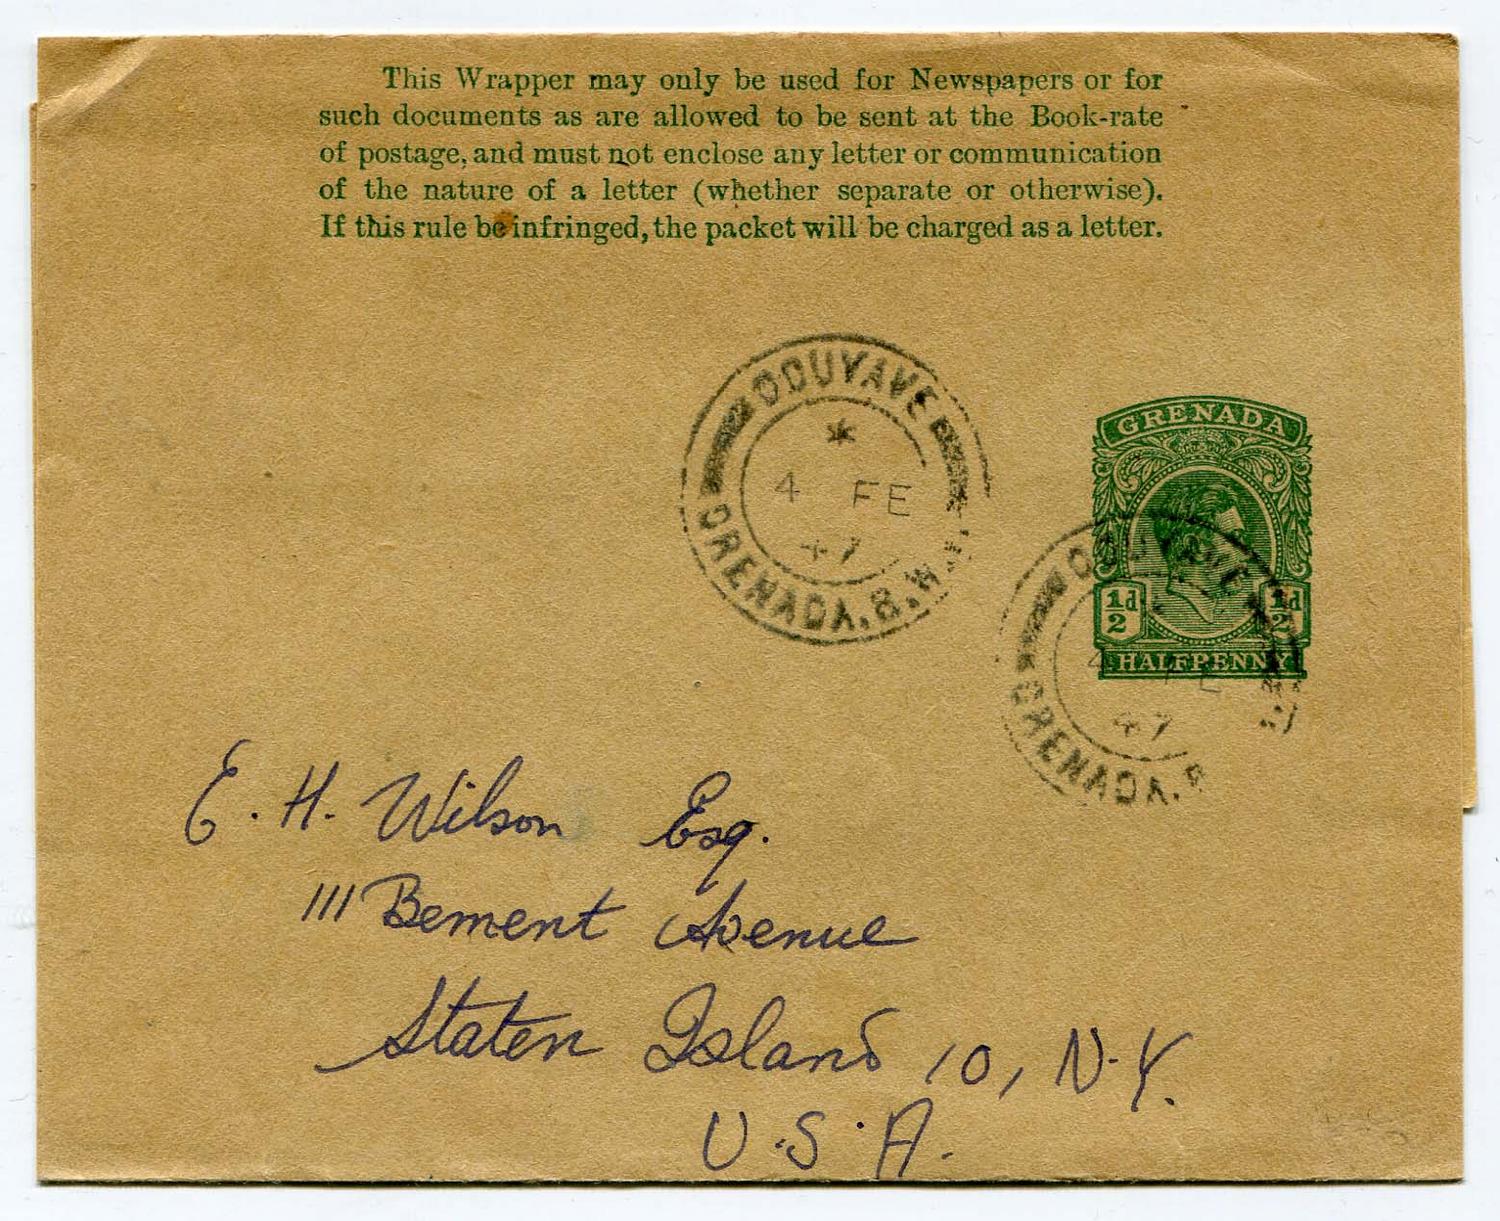 This Wrapper may only be used for Newspapers or for
such documents as are allowed to be sent at the Book-rate
of postage, and must not enclose any letter or communication
of the nature of a letter (whether separate or otherwise).
If this rule be infringed, the packet will be charged as a letter.
GOUYAVE
*
4 FE
47
GRENADA. B.W.I.
GRENADA
½d ½d
HALFPENNY
GOUYAVE
4 FE
47
GRENADA. B
E. H. Wilson Esq.
111 Bement Avenue
Staten Island 10, N.Y.
U.S.A.